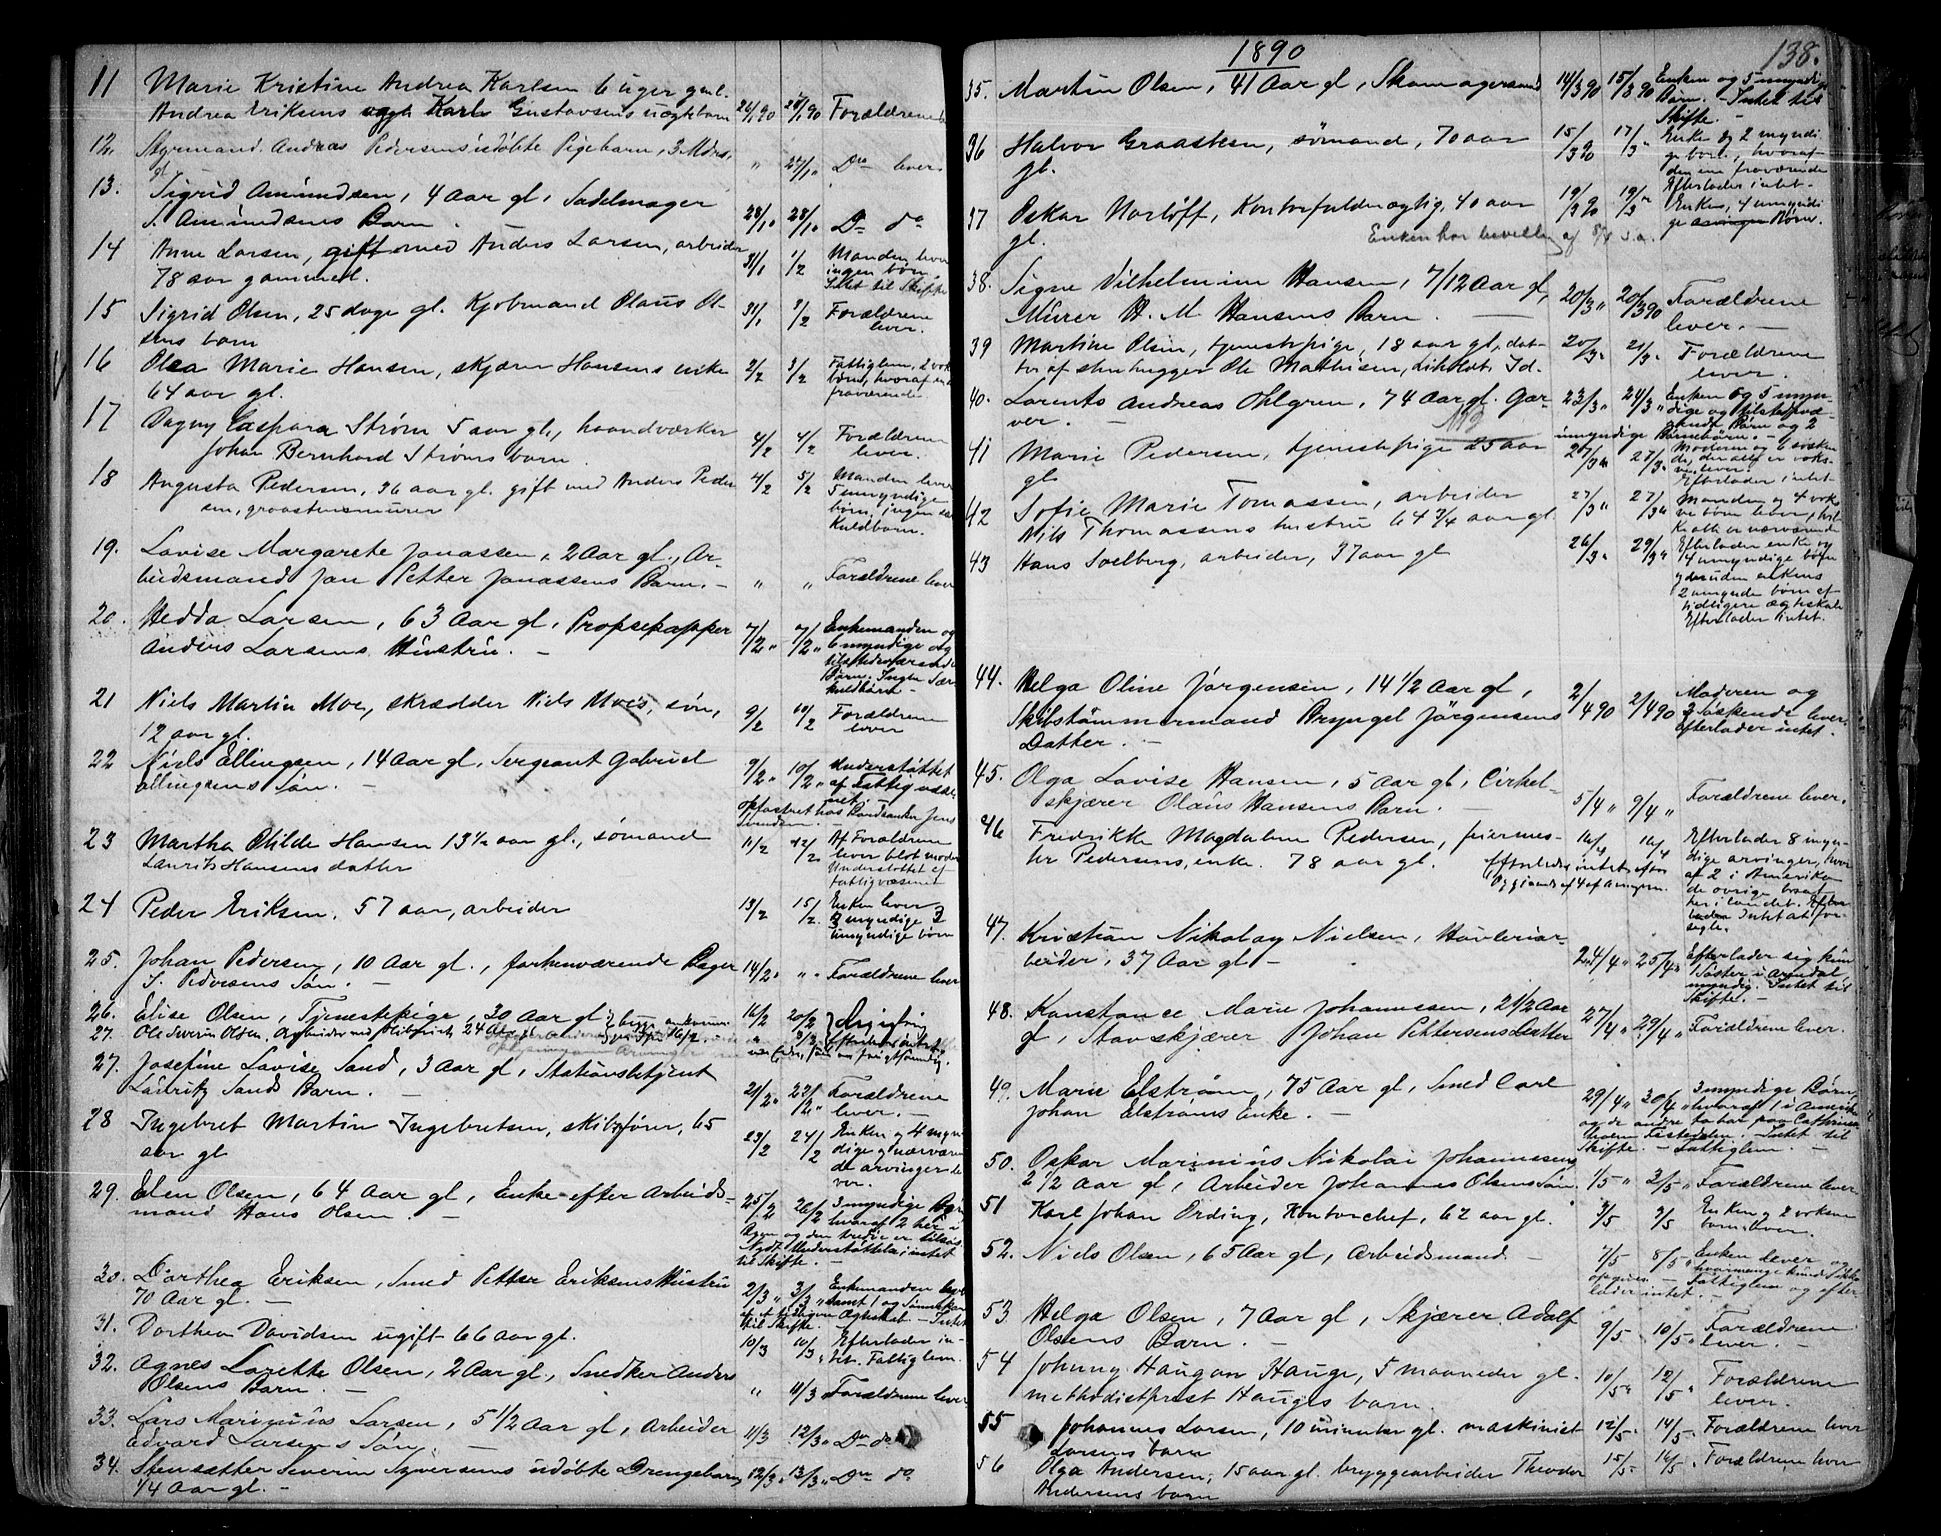 11 Marie Kristine Andrea Karlsen 6 uger gml.
Andrea Eriksens og Karl Gustavsens uægtebarn 26/1 90 28/1 90 Forældrene
12. Styrmand Andreas Pedersens udøbte Pigebarn, 3 Mdr.
gl. " 27/1 " Do lever
13. Sigrid Amundsen, 4 Aar gl, Sadelmager
S. Amundsens Barn. 28/1 " 28/1 " Do do
14 Anne Larsen, gift med Anders Larsen, arbeider
78 aar gammel. 31/1 1/2 Manden lever
ingen børn,
Intet til Skifte
15 Sigrid Olsen, 25 dage gl. Kjøbmand Olaus Ol-
sens barn 31/1 3/2 Forældrene
lever.
16 Olea Marie Hansen, skjærer Hansens enke
64 aar gl. 2/2 3/2 Fattiglem, 2 vok
børn, hvoraf en
fraværende
17 Dagny Caspara Strøm 5 aar gl, haandværker
Johan Bernhard Strøms barn. 4/2 4/2 Forældrene
lever.
18 Augusta Pedersen, 36 aar gl. gift med Anders Peder
sen, graastensmurer 4/2 5/2 Manden lever
5 umyndige
børn, ingen sær
kuldbarn.
19. Lovise Margarete Jonassen, 2 Aar gl., Ar-
beidsmand Jan Petter Jonassens Barn. - " " Forældrene lever
20. Hedda Larsen, 63 Aar gl, Propsekapper
Anders Larsens Hustru. - 7/2 " 7/2 " Enkemanden og
6 myndige og
tilstedeværende
Børn. Ingen Sær
kuldbørn -
21 Niels Martin Moe, skrædder Niels Moes, søn,
12 aar gl. 9/2 10/2 Forældrene
lever
22 Niels Ellingsen, 14 Aar gl, Sergeant Gabriel
Ellingsens Søn. - 9/2 " 10/2 " Understøttet
af Fattigvæse
net
opfostret hos
Svendsen
23 Martha Otilde Hansen 13 1/2 aar gl., sømand
Laurits Hansens datter 11/2 12/2 Af Forældrene
lever blot moder
Understøttet af
fattigvæsenet
24 Peder Eriksen, 57 aar, arbeider 13/2 15/2 Enken lever
3 myndige 3
umyndige børn
25. Johan Pedersen, 10 Aar gl., forhenværende Bager
S. Pedersens Søn. - 14/2 " " " Forældrene lever
26. Elise Olsen, Tjenestepige, 30 Aar gl } begge omkomne 16/2 20/2
27. Ole Severin Olsen, Arbeider ved 24 Aar gl
27. Josefine Lovise Sand, 3 Aar gl, Stationsbetjent
Lauritz Sands Barn. - 21/2 " 22/2 " Forældrene
lever. -
28 Ingebret Martin Ingebretsen, skibsfører, 65
aar gl 23/2 24/2 Enken og 4 myn
dige og nærværen
de arvinger le
ver.
29. Elen Olsen, 64 Aar gl, Enke efter Arbeids-
mand Hans Olsen. - 25/2 26/2 3 myndige Børn
hvoraf 2 her i
Byen og den tredie er tilsøs
Nydt Understøttelse, intet
til Skifte. -
30. Dorthea Eriksen, Smed Petter Eriksens Hustru
70 Aar gl. - 2/3 " 3/3 " Enkemanden lever
samt 1 og
et tidligere Ægteskab - Intet
til Skifte. -
31. Dorthea Davidsen ugift 66 aar gl. 10/3 10/3 Efterlader in-
tet. Fattiglem.
32. Agnes Lorette Olsen, 2 Aar gl, Snedker Anders
Olsens Barn. - " 11/3 Forældrene lever
33. Lars Marinius Larsen, 5 1/2 Aar gl, Arbeider
Edvard Larsens Søn. 11/3 12/3 " Do do
34. Stensætter Severin Syversens udøbte Drengebarn,
1/4 Aar gl. - 12/3 " 13/3 " Do do
1890
138.
35. Martin Olsen, 41 Aar gl, Skomagersvend 14/3 90 15/3 90 Enken og 5 umyndige
Børn. - Intet til
Skifte. -
36 Halvor Graasteen, sømand, 70 aar
gl. 15/3 90 17/3 " Enke og 2 myndi
ge børn, hvoraf
den ene fraværende
Efterlader intet.
37 Oskar Norløff, Kontorfuldmægtig, 40 aar
gl. 19/3 90 19/3 " Enken, 4 umyndi
ge arvinger Børn.
Enken har bevilling af 8/4 s.a.
38. Signe Vilhelmine Hansen, 7/12 Aar gl,
Murer H. M. Hansens Barn. 20/3 " 20/3 90 Forældrene
lever. -
39 Martine Olsen, tjenestepige, 18 aar gl, dat-
ter af stenhugger Ole Mathisen, Id. 20/3 " 21/3 " Forældrene
lever.
40. Lorents Andreas Ohlgren, 74 Aar gl. Gar-
ver. - 23/3 " 24/3 " Enken og 5 myn-
dige og tilstedevæ-
rende Børn og 2
umyndige Børnebørn. -
NB
41 Marie Pedersen, tjenestepige 25 aar
gl 27/3 " 27/3 " Moderen og 6 søsken
de, der alle er voks-
ne, lever.
Efterlader intet.
42 Sofie Marie Tomassen, arbeider
Nils Thomassens hustru 64 3/4 aar gl. 27/3 " 27/3 " Manden og 4 voks
ne børn lever, hvil
ke alle er nærværende
43 Hans Soelberg, arbeider, 37 aar gl 26/3 " 29/3 " Efterlader enke og
4 umyndige børn
desuden enkens
2 umyndige børn af
tidligere ægteskab
Efterlader intet.
44. Helga Oline Jørgensen, 14 1/2 Aar gl,
Skibstømmermand Bryngel Jørgensens
Datter. - 2/4 90 2/4 90 Moderen og
3 Søskende lever.
Efterlader intet.
45. Olga Lovise Hansen, 5 Aar gl, Cirkel-
skjærer Olaus Hansens Barn. - 5/4 " 9/4 " Forældrene lever.
46 Fredrikke Magdalene Pedersen, feiermes-
ter Pedersens, enke. 78 aar gl. 16/4 16/4 Efterlader 8 myn-
dige arvinger, hvor
af 2 i Amerika
de øvrige bosat
her i landet.
47. Kristian Nikolay Nielsen, Høvleriar-
beider, 37 Aar gl - 24/4 " 25/4 " Efterlader sig kun
1 Søster i Arendal,
myndig. Intet til
Skifte. -
48. Konstance Marie Johannessen, 2 1/2 Aar
gl, Stavskjærer Johan Pettersens datter 27/4 " 29/4 " Forældrene lever.
49. Marie Elstrøm, 75 Aar gl, Smed Carl
Johan Elstrøms Enke. - 29/4 " 30/4 " 3 myndige Børn,
hvoraf 1 i Amerika
og de andre to bor paa Cathrine
holm Tistedalen. Intet til
Skifte. - Fattiglem. -
50. Oskar Marinius Nikolai Johannessens
2 1/2 Aar gl, Arbeider Johannes Olsens Søn. 1/5 " 2/5 " Forældrene lever
51 Karl Johan Ording, Kontorchef, 62 aar gl. 3/5 3/5 Enken og 2 voksne
børn lever.
52. Niels Olsen, 65 Aar gl, Arbeidsmand. - 7/5 8/5 " Enken lever og
hvormange Kuld
opgives. - Fattiglem og efter
lader intet. -
53 Helga Olsen, 7 Aar gl, Skjærer Adolf
Olsens Barn. - 9/5 " 10/5 " Forældrene
lever. -
54 Johnny Haugan Hauge, 5 maaneder gl.
methodistprest Hauges barn. 10/5 " 12/5 " Forældrene
lever.
55 Johannes Larsen, 10 minuter gl. maskinist
Larsens barn 12/5 " 14/5 " Forældrene lever
56 Olga Andersen, 15 aar gl. bryggearbeider Theodor
Andersens barn 15/5 " 16/5 " Forældrene lever